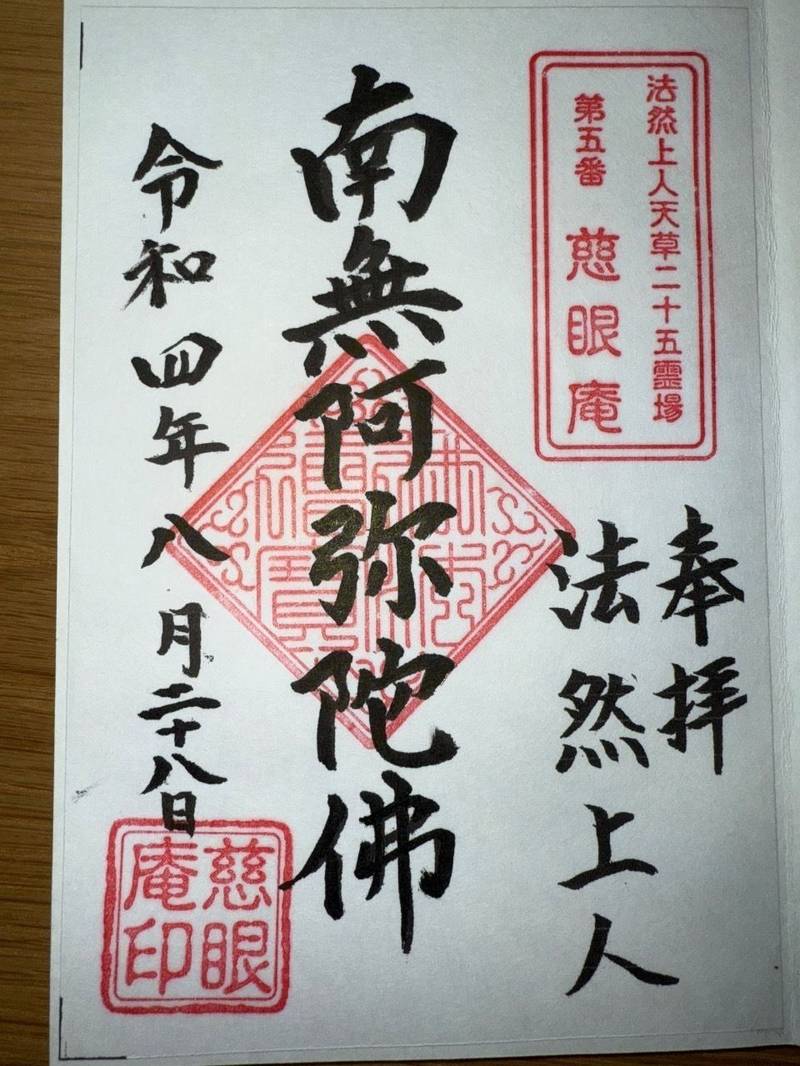 法然上人天草二十五霊場
第五番 慈眼庵
奉拝
法然上人
南無阿弥陀佛
令和四年八月二十八日
慈眼
庵印